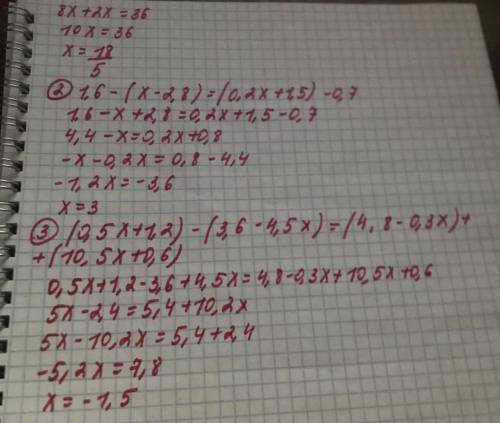 8x+2x=36
10x=36
x=18/5
② 1,6-(x-2,8)=(0,2x+1,5)-0,7
1,6-x+2,8=0,2x+1,5-0,7
4,4-x=0,2x+0,8
-x-0,2x=0,8-4,4
-1,2x=-3,6
x=3
③ (0,5x+1,2)-(3,6-4,5x)=(4,8-0,3x)+
+(10,5x+0,6)
0,5x+1,2-3,6+4,5x=4,8-0,3x+10,5x+0,6
5x-2,4=5,4+10,2x
5x-10,2x=5,4+2,4
-5,2x=7,8
x=-1,5